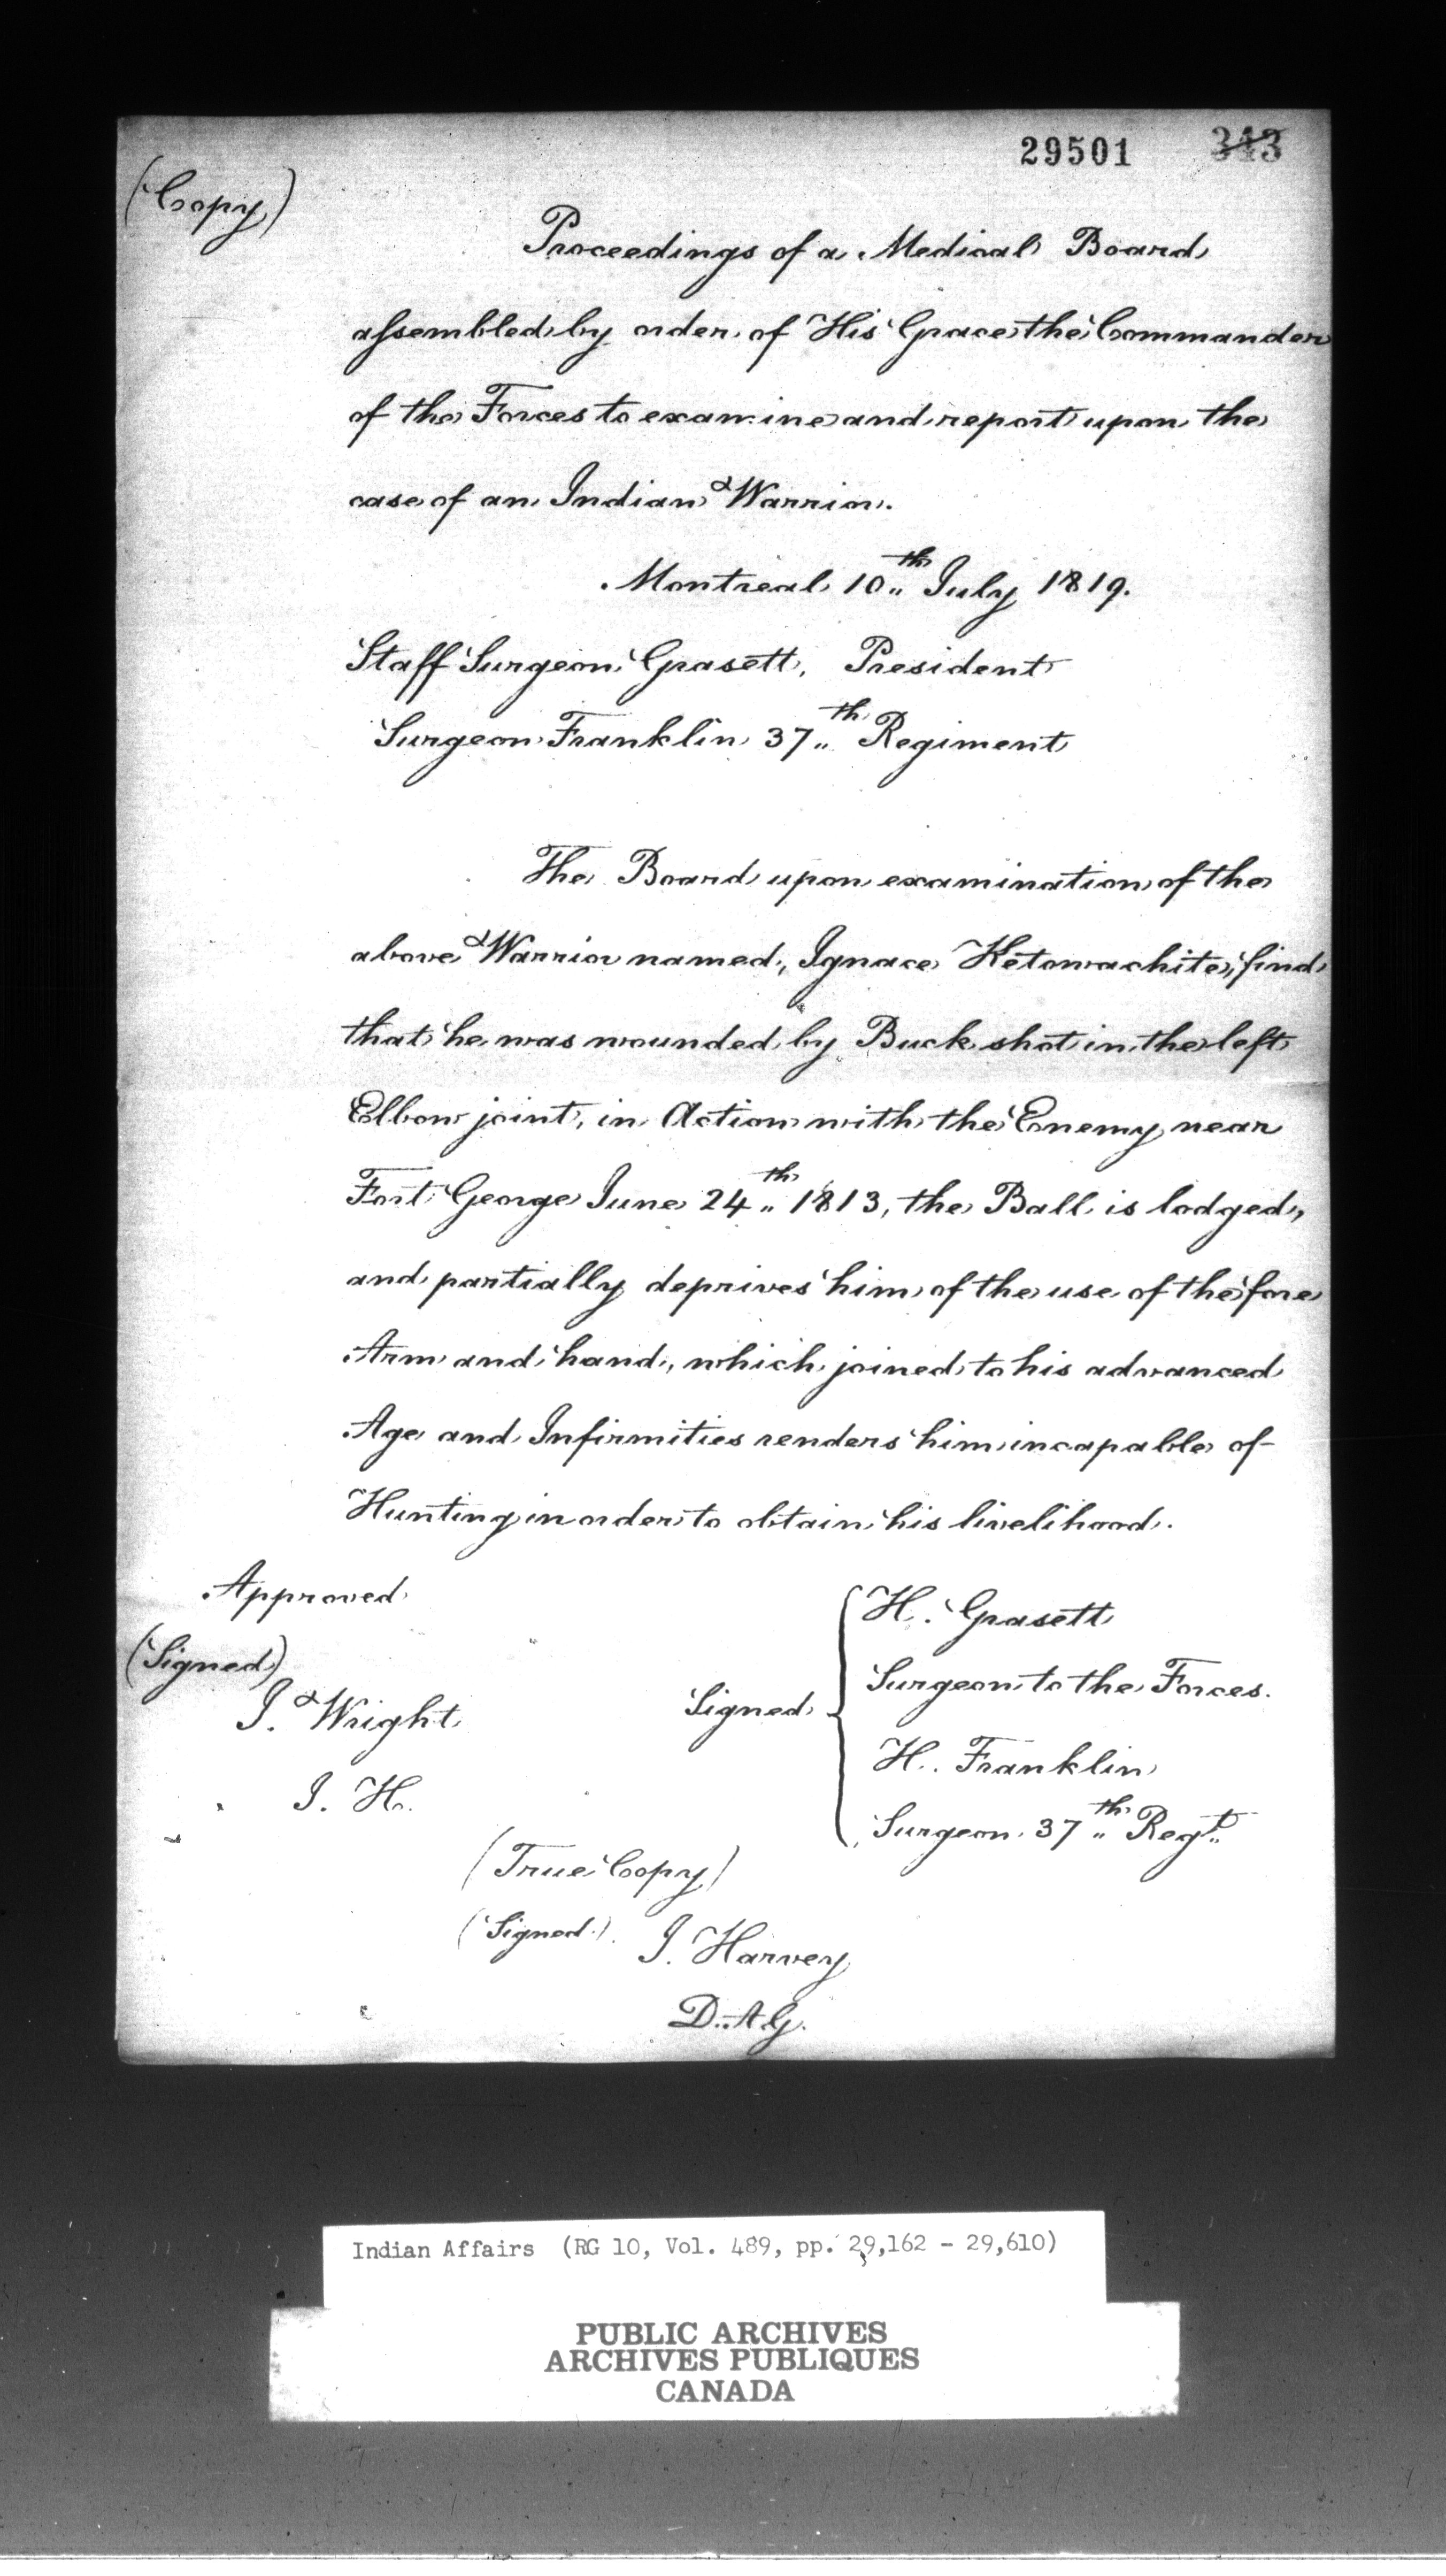 29501 343
(Copy)
Proceedings of a Medical Board
assembled by order of His Grace the Commander
of the Forces to examine and report upon the
case of an Indian Warrior.
Montreal 10th July 1819.
Staff Surgeon Grasett, President
Surgeon Franklin 37th Regiment
The Board upon examination of the
above Warrior named, Ignace Ketowachite, find
that he was wounded by Buck shot in the left
Elbow joint, in Action with the Enemy near
Fort George June 24th 1813, the Ball is lodged,
and partially deprives him of the use of the fore
Arm and hand, which joined to his advanced
Age and Infirmities renders him incapable of
Hunting in order to obtain his livelihood.
Approved
(Signed)
J. Wright
I. H.
Signed
H. Grasett
Surgeon to the Forces.
H. Franklin
Surgeon 37th Regt.
(True Copy)
(Signed) J. Harvey
D.A.G.
Indian Affairs (RG 10, Vol. 489, pp. 29,162 - 29,610)
PUBLIC ARCHIVES
ARCHIVES PUBLIQUES
CANADA